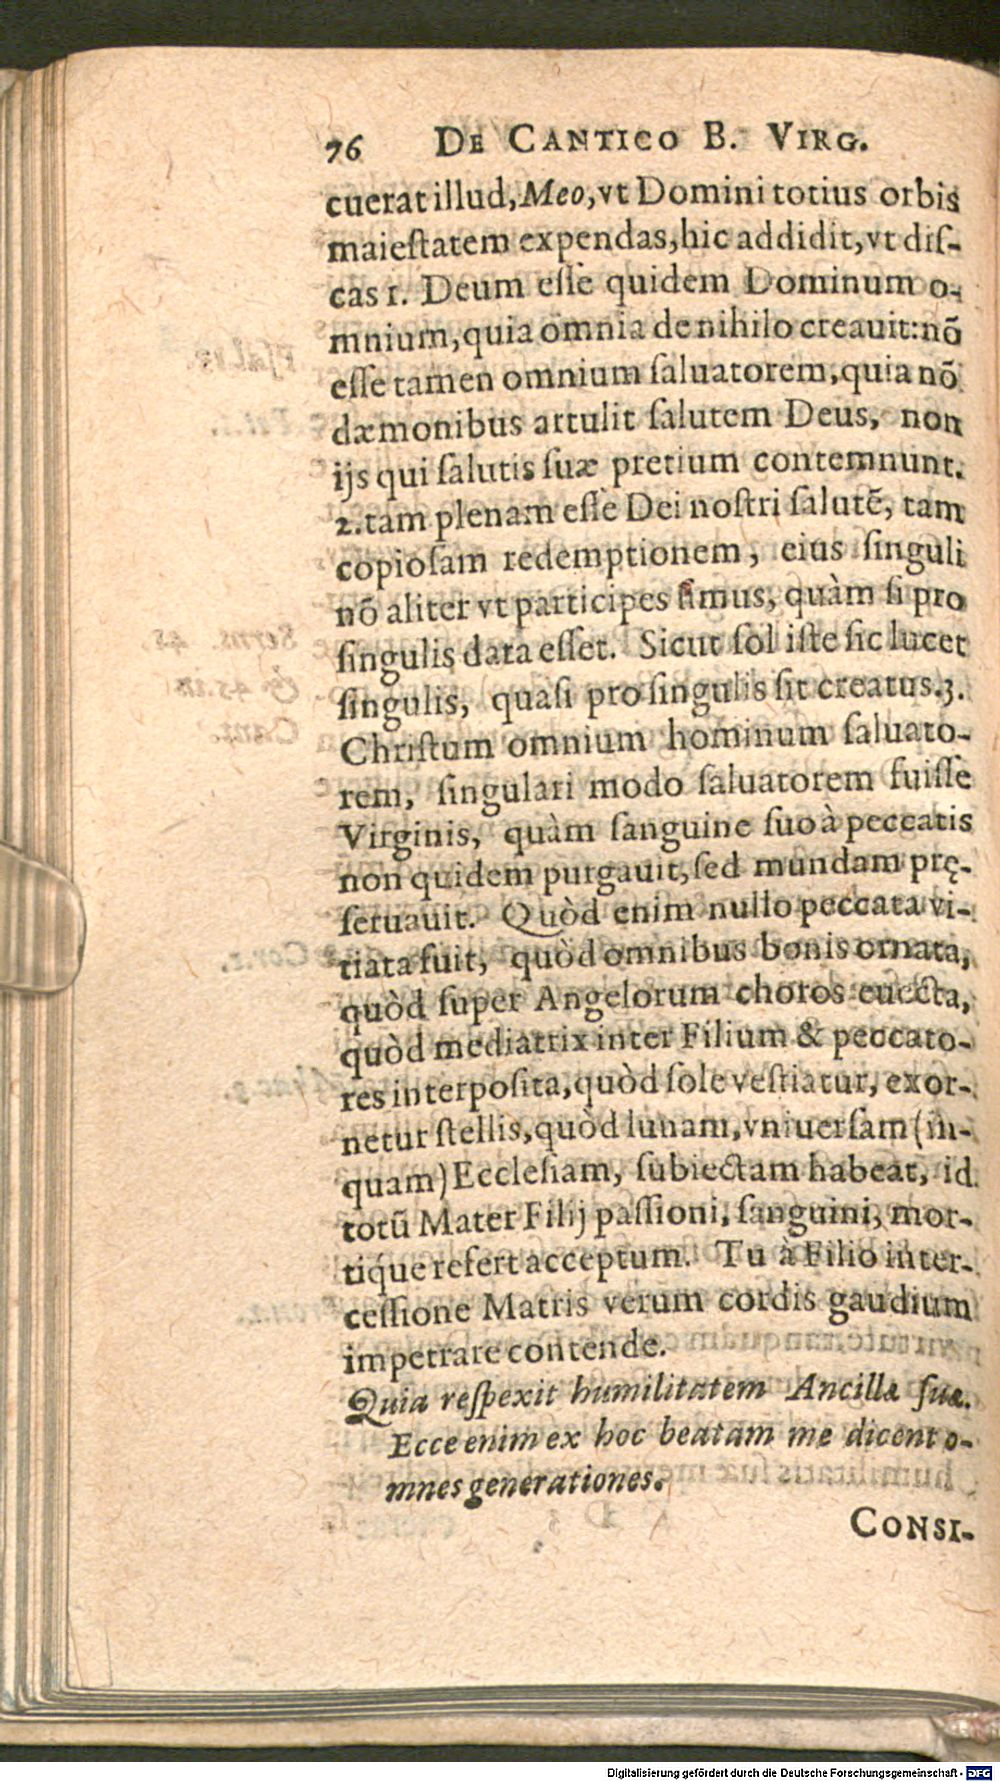 76 DE CANTICO B. VIRG.
cuerat illud, Meo, vt Domini totius orbis
maiestatem expendas, hic addidit, vt dis-
cas 1. Deum esse quidem Dominum o-
mnium, quia omnia de nihilo creauit: nõ
esse tamen omnium saluatorem, quia nõ
dæmonibus attulit salutem Deus, non
ijs qui salutis suæ pretium contemnunt.
2. tam plenam esse Dei nostri salutẽ, tam
copiosam redemptionem, eius singuli
nõ aliter vt participes simus, quàm si pro
singulis data esset. Sicut sol iste sic lucet
singulis, quasi pro singulis sit creatus. 3.
Christum omnium hominum saluato-
rem, singulari modo saluatorem fuisse
Virginis, quàm sanguine suo à peccatis
non quidem purgauit, sed mundam prę-
seruauit. Quòd enim nullo peccata vi-
tiata fuit, quòd omnibus bonis ornata,
quòd super Angelorum choros euecta,
quòd mediatrix inter Filium & peccato-
res interposita, quòd sole vestiatur, exor-
netur stellis, quòd lunam, vniuersam (in-
quam) Ecclesiam, subiectam habeat, id
totũ Mater Filij passioni, sanguini, mor-
tique refert acceptum. Tu à Filio inter-
cessione Matris verum cordis gaudium
impetrare contende.
Quia respexit humilitatem Ancillæ suæ.
Ecce enim ex hoc beatam me dicent o-
mnes generationes.
CONSI-
Digitalisierung gefördert durch die Deutsche Forschungsgemeinschaft - DFG